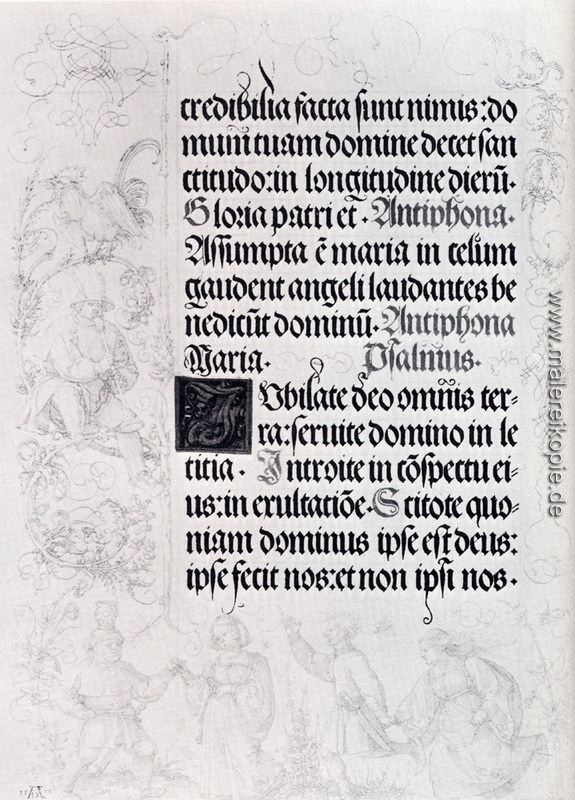 credibilia facta sunt nimis: do
mum tuam domine decet san
ctitudo: in longitudine dierū.
Gloria patri et. Antiphona.
Assumpta ē maria in celum
gaudent angeli laudantes be
nedicūt dominū. Antiphona
Maria. Psalmus.
IVbilate deo omnis ter-
ra: seruite domino in le
titia. Introite in cōspectu ei-
us: in exultatiōe. Scitote quo-
niam dominus ipse est deus:
ipse fecit nos: et non ipsi nos.
www.malereikopie.de